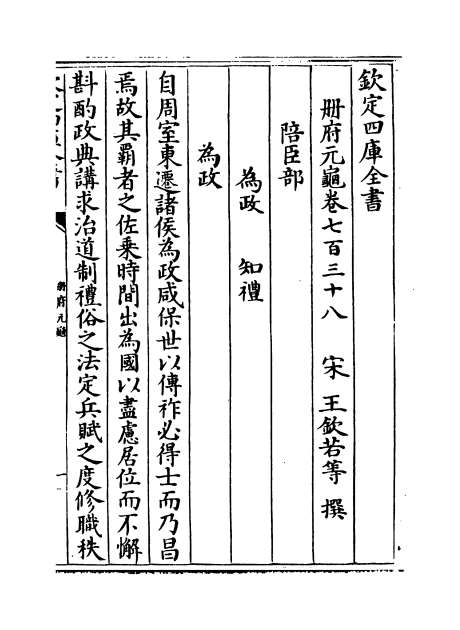 欽定四庫全書
冊府元龜卷七百三十八　宋　王欽若等　撰
陪臣部
為政　知禮
為政
自周室東遷諸侯為政咸保世以傳祚必得士而乃昌
焉故其霸者之佐乘時間出為國以盡慮居位而不懈
斟酌政典講求治道制禮俗之法定兵賦之度修職秩
冊府元龜
一